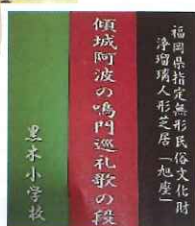 福岡県指定無形民俗文化財
浄瑠璃人形芝居「旭座」
傾城阿波の鳴門巡礼歌の段
黒木小学校